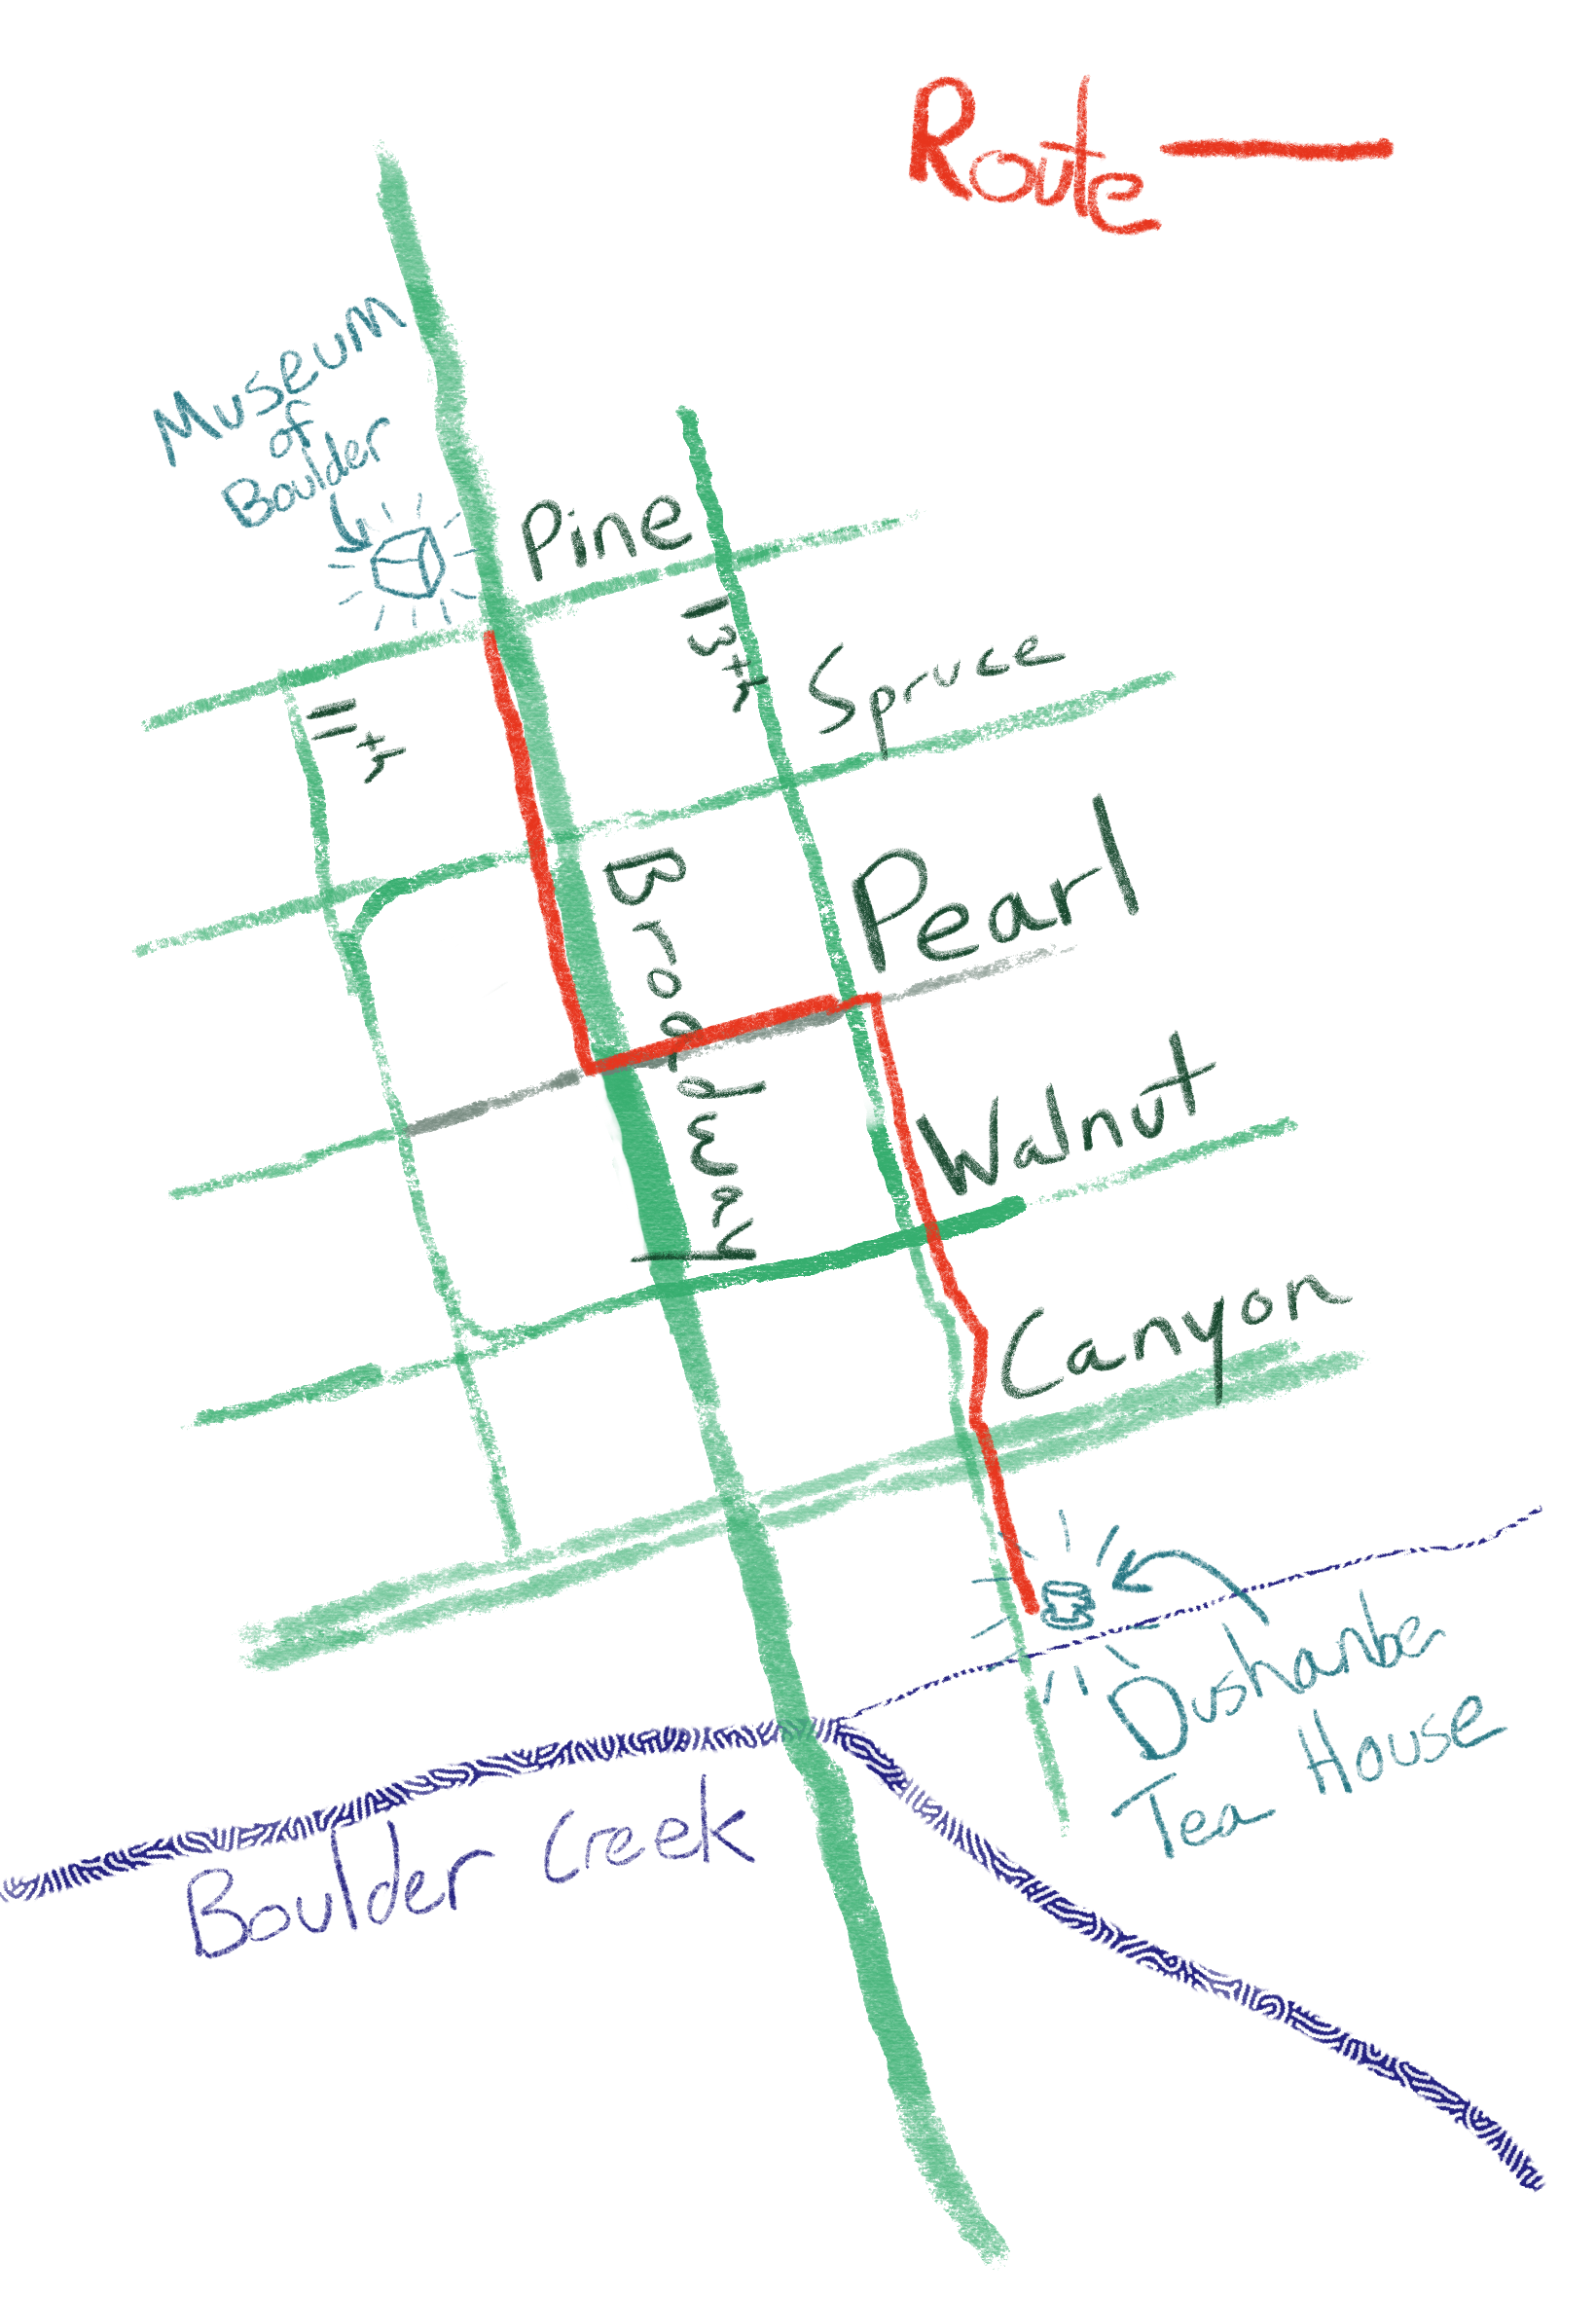 Route
Museum
of
Boulder
Pine
13th
Spruce
11th
Broadway
Pearl
Walnut
Canyon
Dushanbe
Tea House
Boulder Creek